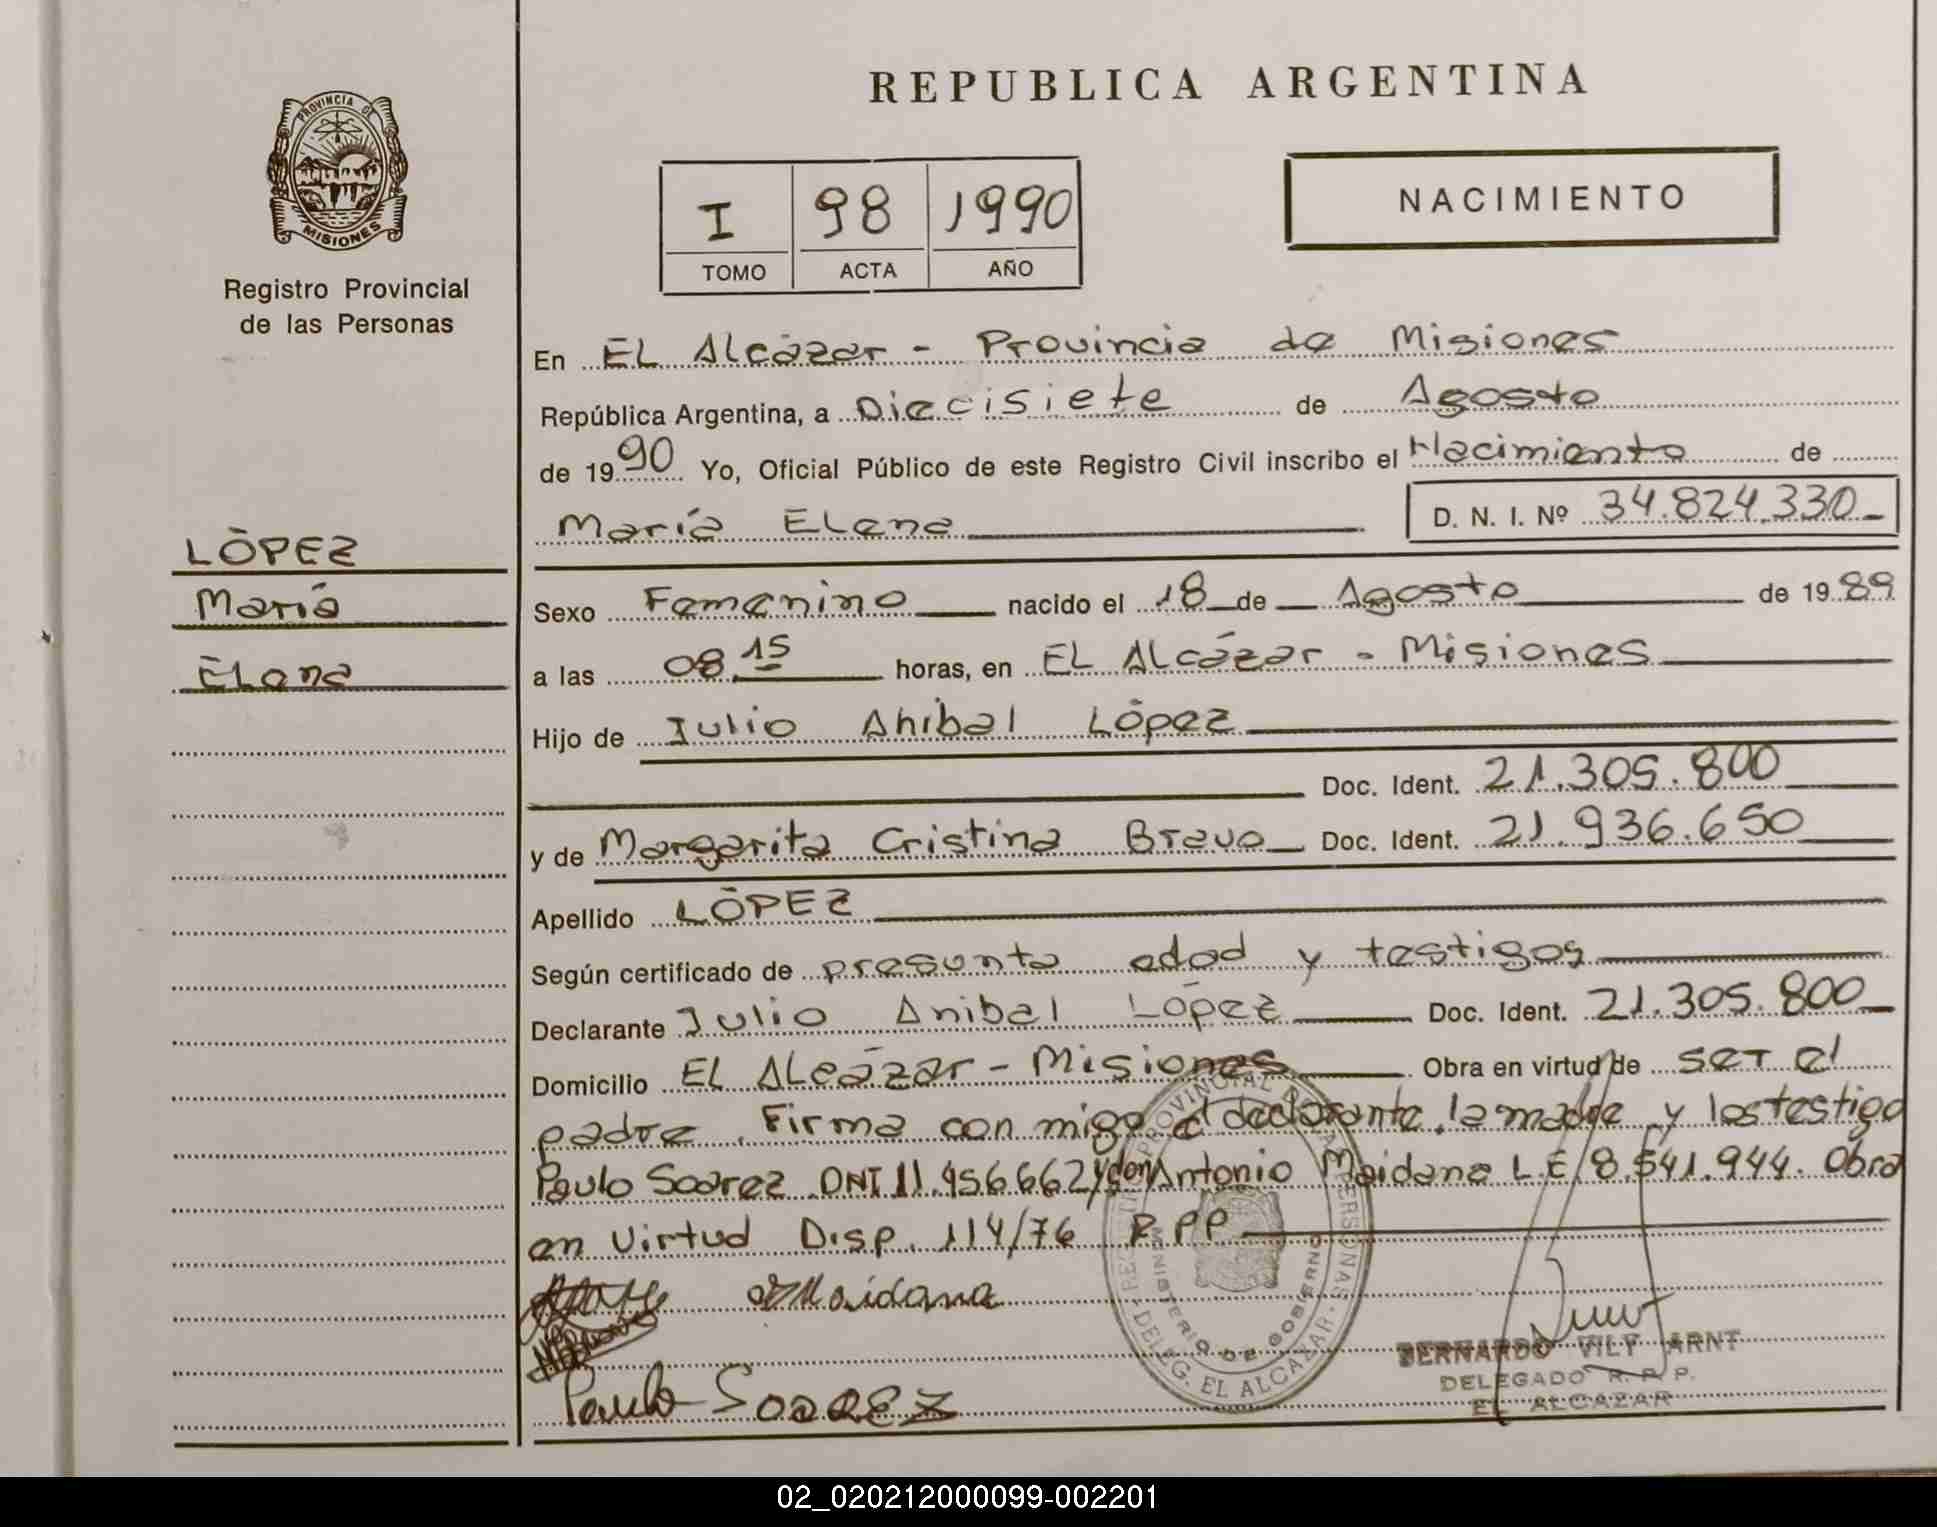 PROVINCIA DE
MISIONES
Registro Provincial
de las Personas
LÓPEZ
María
Elena
REPUBLICA ARGENTINA
I 98 1990
TOMO ACTA AÑO
NACIMIENTO
En EL Alcázar - Provincia de Misiones
República Argentina, a Diecisiete de Agosto
de 1990 Yo, Oficial Público de este Registro Civil inscribo el Nacimiento de
María Elena D. N. I. Nº 34.824.330
Sexo Femenino nacido el 18 de Agosto de 1989
a las 08.15 horas, en EL Alcázar - Misiones
Hijo de Julio Anibal López
Doc. Ident. 21.305.800
y de Margarita Cristina Bravo Doc. Ident. 21.936.650
Apellido LÓPEZ
Según certificado de presunta edad y testigos
Declarante Julio Anibal López Doc. Ident. 21.305.800
Domicilio EL Alcázar - Misiones Obra en virtud de ser el
padre. Firma con migo el declarante, la madre y los testigo
Paulo Soarez DNI 11.956.662 y don Antonio Maidana L.E 8.541.944. Obra
en Virtud Disp. 114/76 R.PP
Maidana
Paulo Soarez
REGISTRO PROVINCIAL DE LAS PERSONAS
MINISTERIO DE GOBIERNO
DELEG. EL ALCAZAR
BERNARDO VILY ARNT
DELEGADO R. P. P.
EL ALCAZAR
02_020212000099-002201